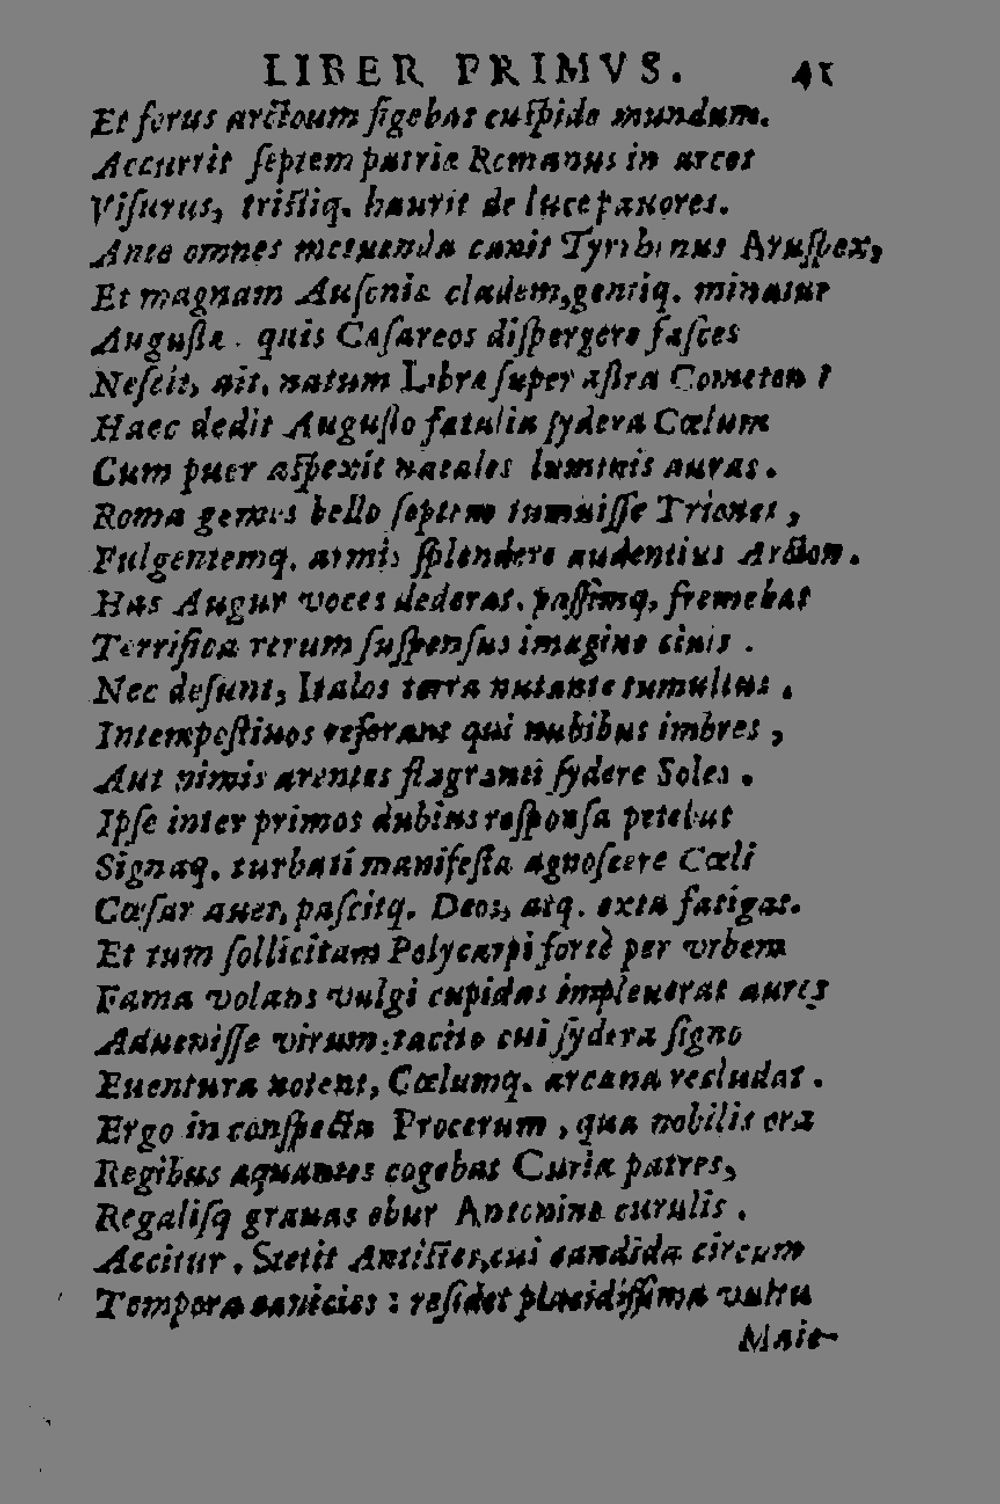 LIBER PRIMVS. 41
Et ferus arctoum figebat cuspide mundum.
Accurrit septem patriæ Romanus in arces
Visurus, tristiq. haurit de luce pauores.
Ante omnes metuenda canit Tyrrhenus Aruspex,
Et magnam Ausoniæ cladem, gentiq. minatur
Augustæ. quis Cæsareos dispergere fasces
Nescit, ait, natum Libræ super astra Cometen?
Haec dedit Augusto fatalia sydera Cœlum
Cum puer aspexit natales luminis auras.
Roma gemes bello septem tumuisse Triones,
Fulgentemq. armis splendere audentius Arcton.
Has Augur voces dederat. passimq, fremebat
Terrifica rerum suspensus imagine ciuis.
Nec desunt, Italos terra nutante tumultus.
Intempestiuos referant qui nubibus imbres,
Aut nimis arentes flagranti sydere Soles.
Ipse inter primos dubius responsa petebat
Signaq. turbati manifesta agnoscere Cœli
Cæsar auet, pascitq. Deos, atq. exta fatigat.
Et tum sollicitam Polycarpi fortè per vrbem
Fama volans vulgi cupidas impleuerat aures
Aduenisse virum: tacito cui sydera signo
Euentura notent, Cœlumq. arcana recludat.
Ergo in conspectu Procerum, qua nobilis ora
Regibus æquantes cogebat Curia patres,
Regalisq grauas ebur Antonine curulis.
Accitur. Stetit Antistes, cui candida circum
Tempora canicies: residet placidissima vultu
Maie-